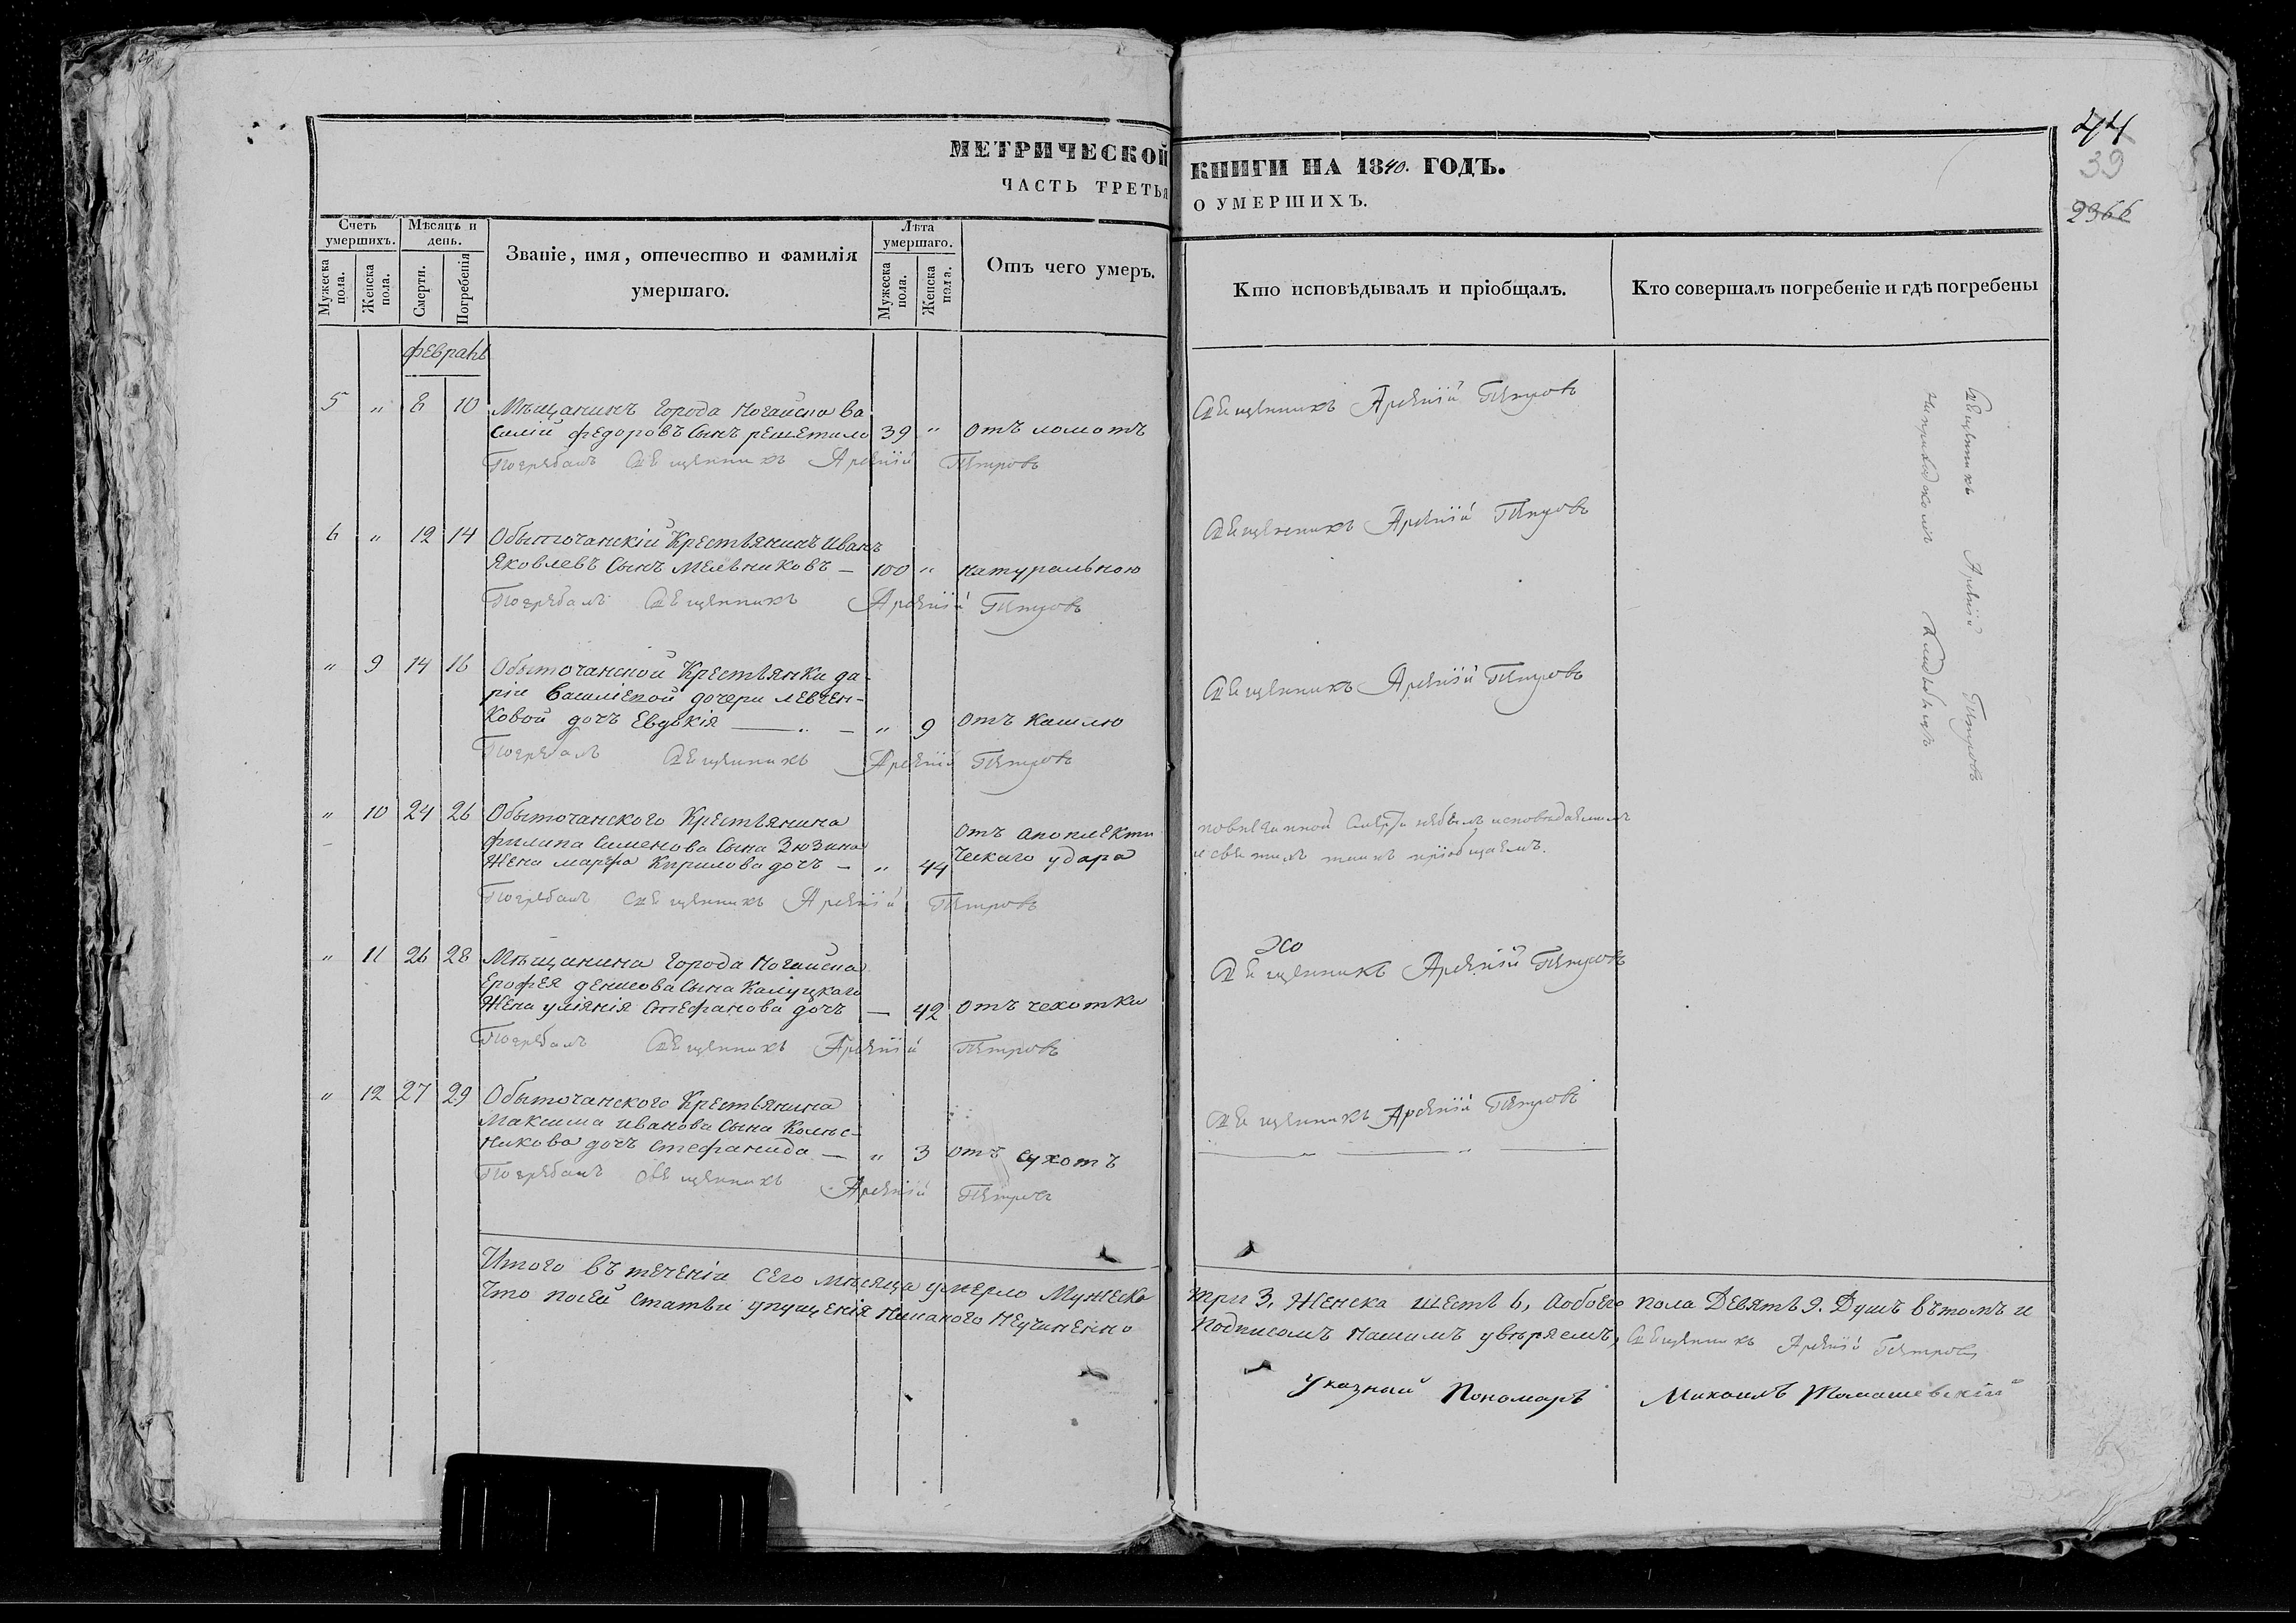 МЕТРИЧЕСКОЙ КНИГИ НА 1840. ГОДЪ.
ЧАСТЬ ТРЕТЬЯ О УМЕРШИХЪ.
44
39
2366
Счетъ умершихъ.
Мужеска пола.
Женска пола.
Мѣсяцъ и день.
Смерти.
Погребенія
Званіе, имя, отечество и фамилія умершаго.
Лѣта умершаго.
Мужеска пола.
Женска пола.
Отъ чего умеръ.
Кто исповѣдывалъ и пріобщалъ.
Кто совершалъ погребеніе и гдѣ погребены
февраль
5 " 8 10 Мѣщанинъ города Ногайска Ва
силій федоровъ Сынъ решетило 39 " отъ ломотъ
Священникъ Арсеній Петровъ
Погребалъ Священникъ Арсеній Петровъ
6 " 12 14 Обыточанскій Крестьянинъ Иванъ
Яковлевъ Сынъ Мельниковъ — 100 " натуральною
Священникъ Арсеній Петровъ
Погребалъ Священникъ Арсеній Петровъ
" 9 14 16 Обыточанской Крестьянки да-
ріи Василіевой дочери левчен-
ковой дочъ Евдокія — " 9 отъ кашлю
Священникъ Арсеній Петровъ
Погребалъ Священникъ Арсеній Петровъ
" 10 24 26 Обыточанского Крестьянина
филипа Семенова Сына Зюзина
Жена марфа Кирилова дочъ — " 44 отъ апоплекти
ческаго удара
Погребалъ Священникъ Арсеній Петровъ
" 11 26 28 Мѣщанина города Ногайска
Ерофея денисова Сына Калуцкаго
Жена уліянія Стефанова дочъ — 42 отъ чехотки
Священникъ Арсеній Петровъ
Погребалъ Священникъ Арсеній Петровъ
" 12 27 29 Обыточанского Крестьянина
Максима иванова Сына Колес-
никова дочъ Стефанида — " 3 отъ сухотъ
Священникъ Арсеній Петровъ
Погребалъ Священникъ Арсеній Петровъ
Священникъ Арсеній Петровъ
Кладбищѣ
Итого въ теченіи сего мѣсяца умерло Мужеска три 3, Женска шесть 6, Аобоего пола Девять 9. Душъ вътомъ и
Что посей статьи упущенія никакого неучинено Подписомъ нашимъ увѣряемъ, Священникъ Арсеній Петровъ
Указный Пономарь Михаилъ Томашевскій